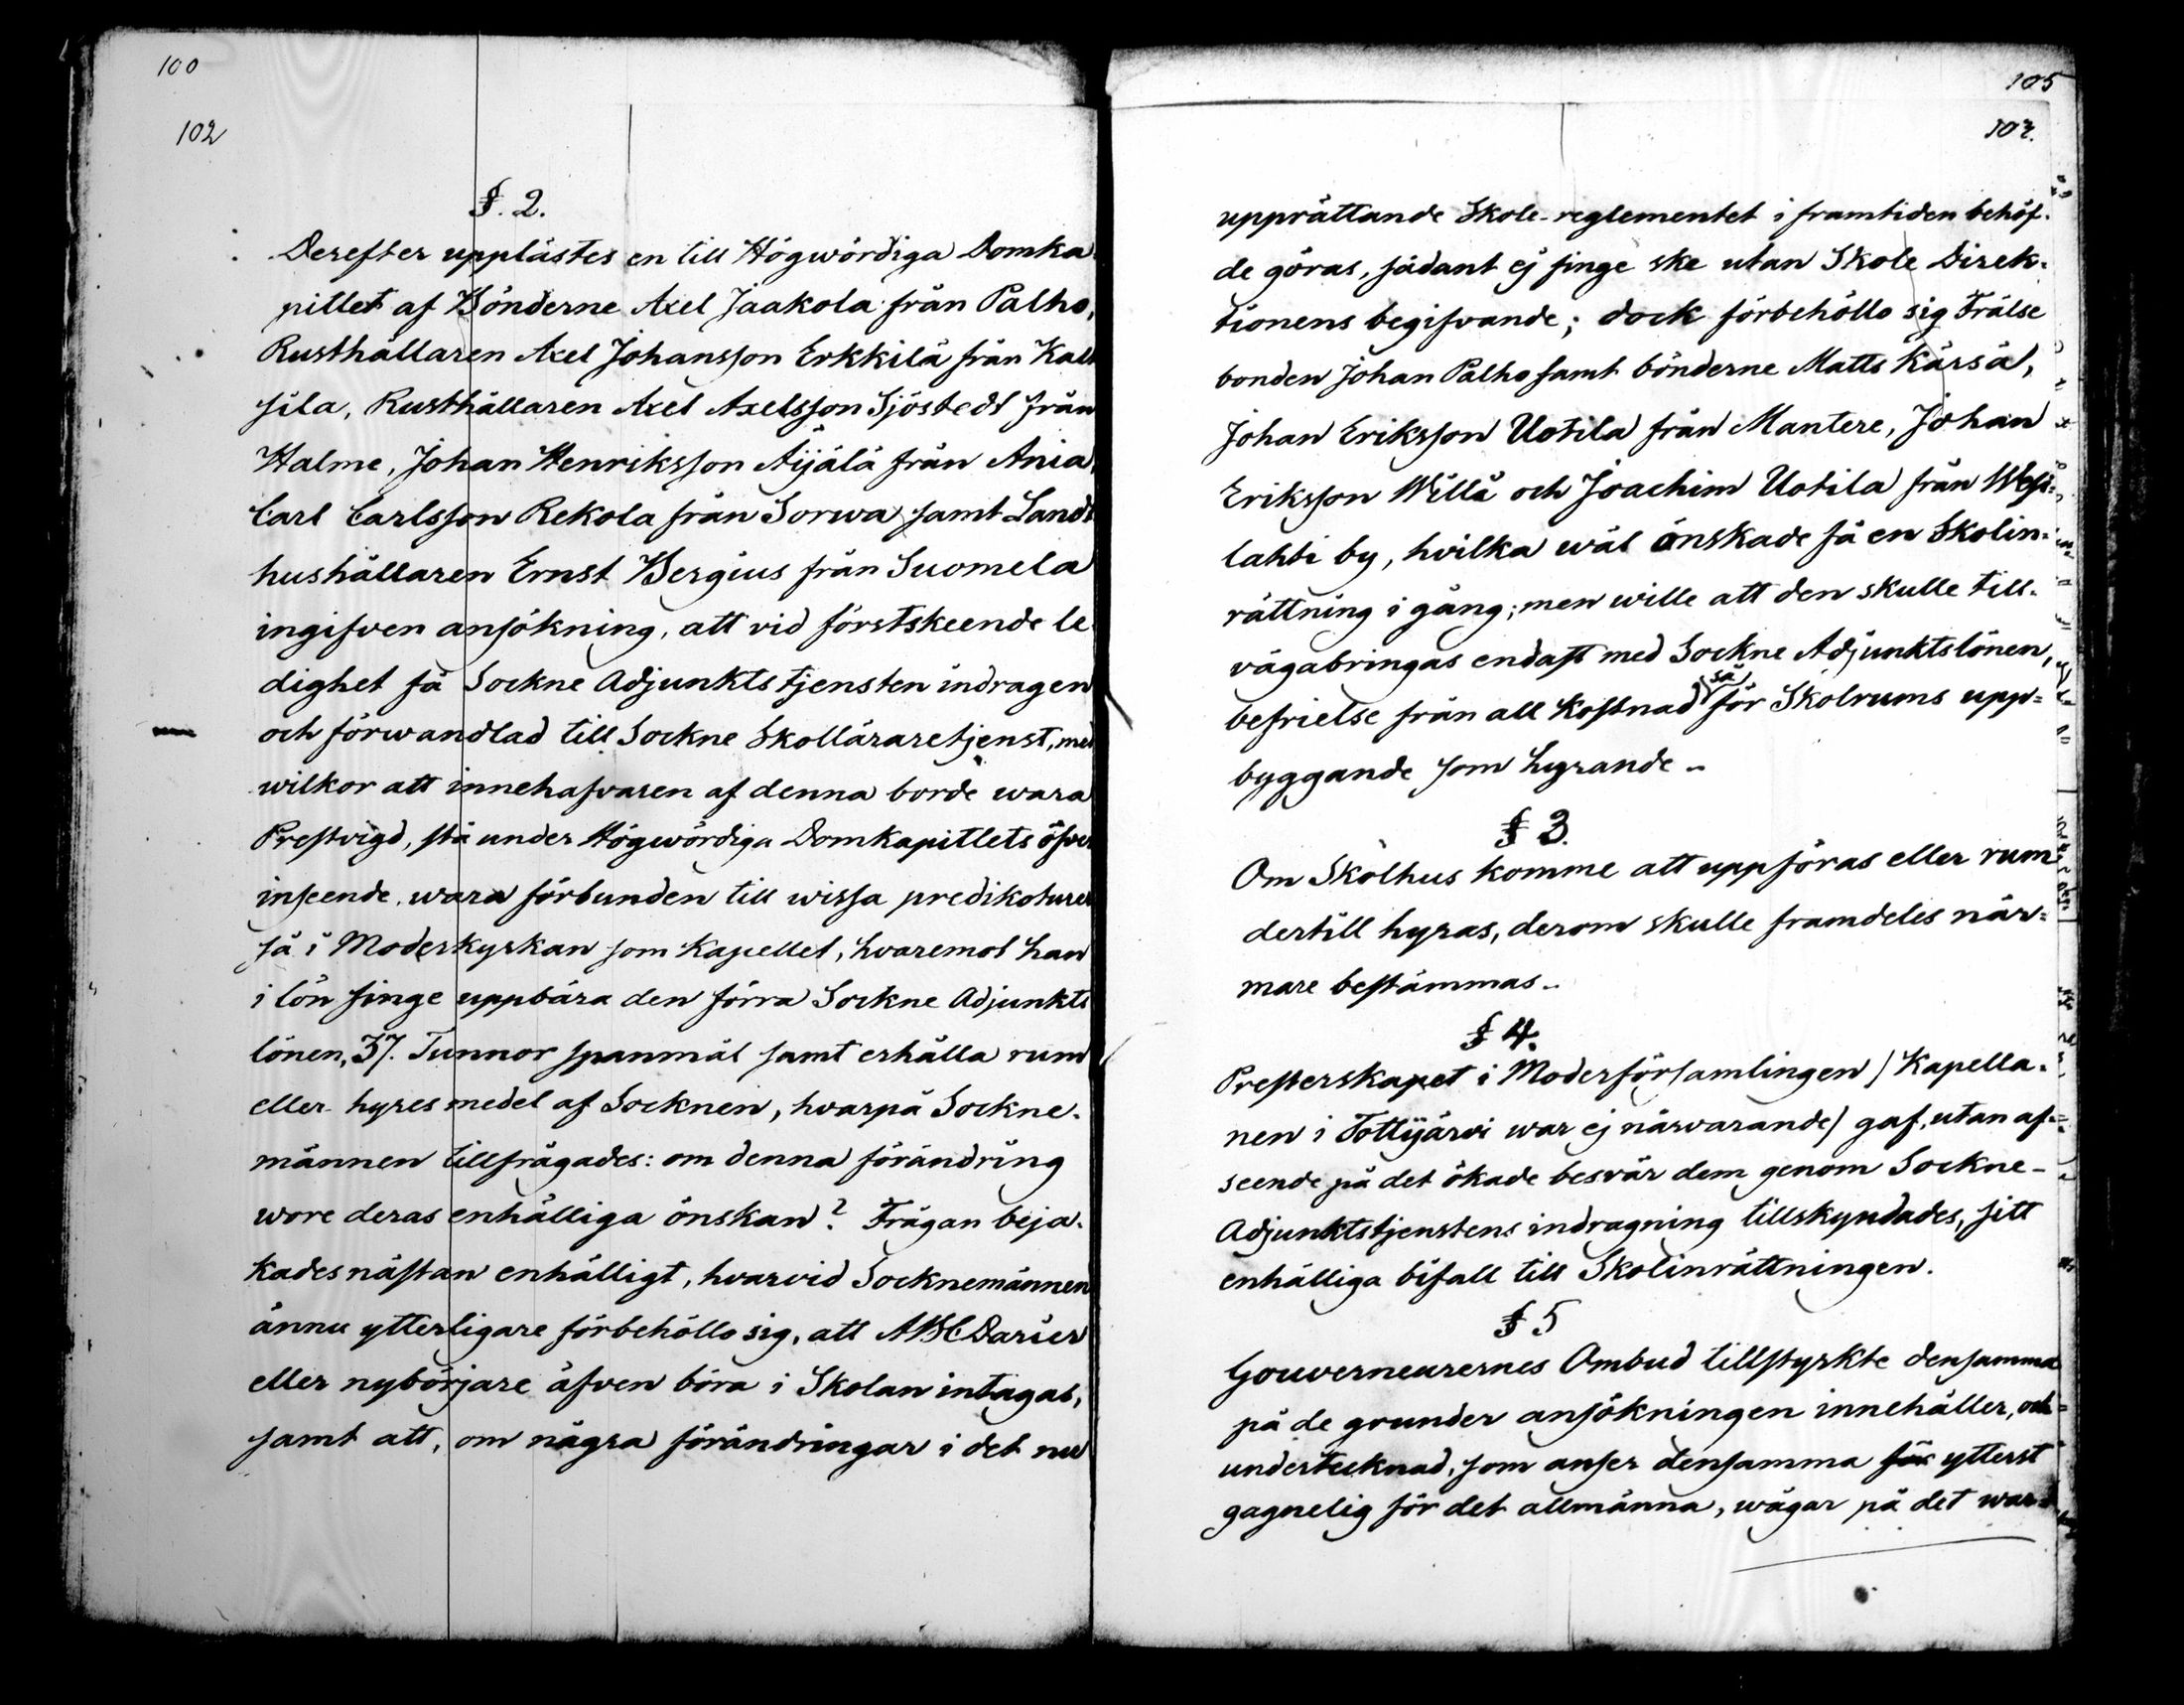 100
102
§. 2.
Derefter upplästes en till Högwördiga Domka
pittlet af Bönderne Axel Jaakola från Palho,
Rusthållaren Axel Johansson Erkkilä från Kal
sila, Rusthållaren Axel Axelsson Sjöstedt från
Halme, Johan Henriksson Äijälä från Ania
Carl Carlsson Rekola från Sorwa samt Land
hushållaren Ernst Bergius från Suomela
ingifven ansökning, att vid förstskeende le
dighet få Sockne Adjunkts tjensten indragen
och förwandlad till Sockne Skollärare tjenst, med
wilkor att innehafvaren af denna borde wara
Prestvigd, stå under Högwördiga Domkapitlets öfver
inseende, wara förbunden till wissa predikoturer
så i Moderkyrkan som Kapellet, hvaremot han
i lön finge uppbära den förra Sockne Adjunkts
lönen, 37. Tunnor spanmål samt erhålla rum
eller hyresmedel af Socknen, hvarpå Sockne-
männen tillfrågades: om denna förändring
wore deras enhälliga önskan? Frågan beja-
kades nästan enhälligt, hvarvid Socknemännen
ännu ytterligare förbehöllo sig, att ABCDarier
eller nybörjare äfven böra i Skolan intagas,
samt att, om några förändringar i det nu
105
103.
upprättande Skole-reglementet i framtiden behöf-
de göras, sådant ej finge ske utan Skole Direk-
tionens begifvande; dock förbehöllo sig Frälse
bonden Johan Palho samt bönderne Matts Kärsä,
Johan Eriksson Uotila från Mantere, Johan
Eriksson Willä och Joachim Uotila från Wesi-
lahti by, hvilka wäl önskade få en Skolin-
rättning i gång; men wille att den skulle till-
vägabringas endast med Sockne Adjunktslönen,
befrielse från all kostnad så för Skolrums upp-
byggande som hyrande.
§ 3.
Om Skolhus komme att uppföras eller rum
dertill hyras, derom skulle framdeles när-
mare bestämmas.
§ 4.
Presterskapet i Moderförsamlingen / Kapella-
nen i Tottijärvi war ej närvarande / gaf, utan af-
seende på det ökade besvär dem genom Sockne-
Adjunktstjenstens indragning tillskyndades, sitt
enhälliga bifall till Skolinrättningen.
§ 5
Gouverneurernes Ombud tillstyrkte densamma
på de grunder ansökningen innehåller, och
undertecknad, som anser densamma för ytterst
gagnelig för det allmänna, wågar på det war-